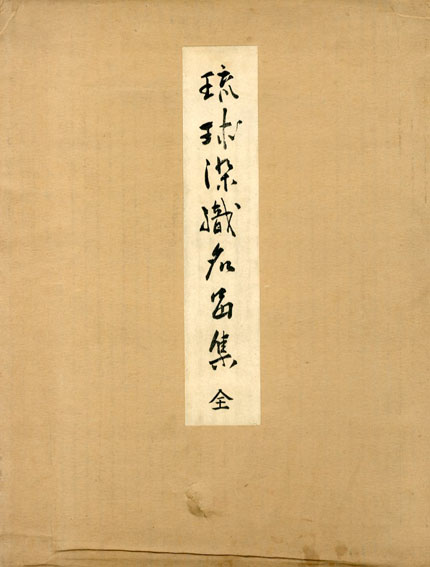 琉球染織名品集 全